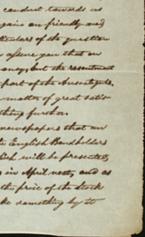 conduct towards us
again on friendly and
ticulars of the question
assure you that on
ancy, but the resentment
part of the
matter of great satis
thing further.
newspapers that an
English Bondholders
ich will be presented
in April next, and as
the price of the stock
ke something by to